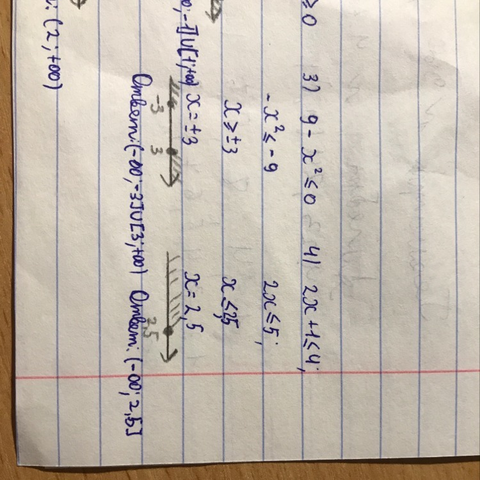 ≥0 3) 9 - x² ≤ 0 4) 2x + 1 ≤ 4;
-x² ≤ -9 2x ≤ 5;
x ≥ ±3 x ≤ 2,5
∞; -1] U [1; +∞) x = ±3 x = 2,5
-3 3 2,5
Ответ: (-∞; -3] U [3; +∞) Ответ: (-∞; 2,5]
: (2; +∞)